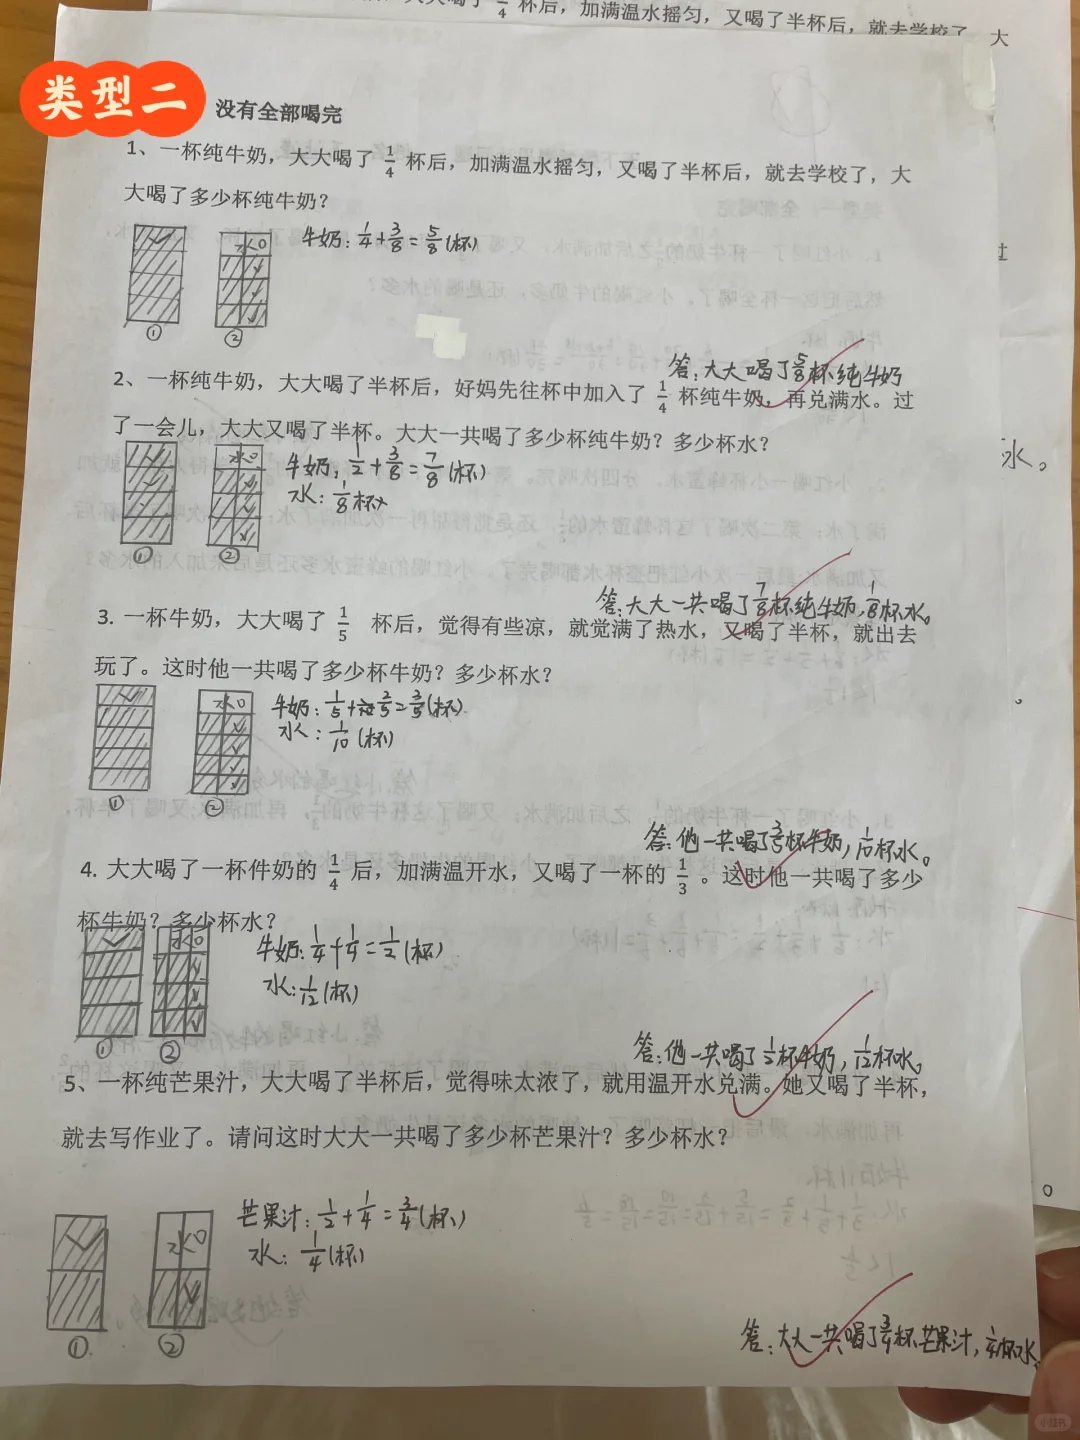 杯后，加满温水摇匀，又喝了半杯后，就去学校了，大
类型二
没有全部喝完
1、一杯纯牛奶，大大喝了 1/4 杯后，加满温水摇匀，又喝了半杯后，就去学校了，大
大喝了多少杯纯牛奶？
水
牛奶：1/4+3/8=5/8(杯)
① ②
答：大大喝了5/8杯纯牛奶
2、一杯纯牛奶，大大喝了半杯后，好妈先往杯中加入了 1/4 杯纯牛奶，再兑满水。过
了一会儿，大大又喝了半杯。大大一共喝了多少杯纯牛奶？多少杯水？
水
牛奶：1/2+3/8=7/8(杯)
水：1/8杯
① ②
答：大大一共喝了7/8杯纯牛奶，1/8杯水。
3. 一杯牛奶，大大喝了 1/5 杯后，觉得有些凉，就觉满了热水，又喝了半杯，就出去
玩了。这时他一共喝了多少杯牛奶？多少杯水？
水
牛奶：1/5+2/5=3/5(杯)
水：1/10(杯)
① ②
答：他一共喝了3/5杯牛奶，1/10杯水。
4. 大大喝了一杯件奶的 1/4 后，加满温开水，又喝了一杯的 1/3 。这时他一共喝了多少
杯牛奶？多少杯水？
水
牛奶：1/4+1/4=1/2(杯)
水：1/12(杯)
① ②
答：他一共喝了1/2杯牛奶，1/12杯水。
5、一杯纯芒果汁，大大喝了半杯后，觉得味太浓了，就用温开水兑满。她又喝了半杯，
就去写作业了。请问这时大大一共喝了多少杯芒果汁？多少杯水？
水
芒果汁：1/2+1/4=3/4(杯)
水：1/4(杯)
① ②
答：大大一共喝了3/4杯芒果汁，1/4杯水。
过
水。
小红书